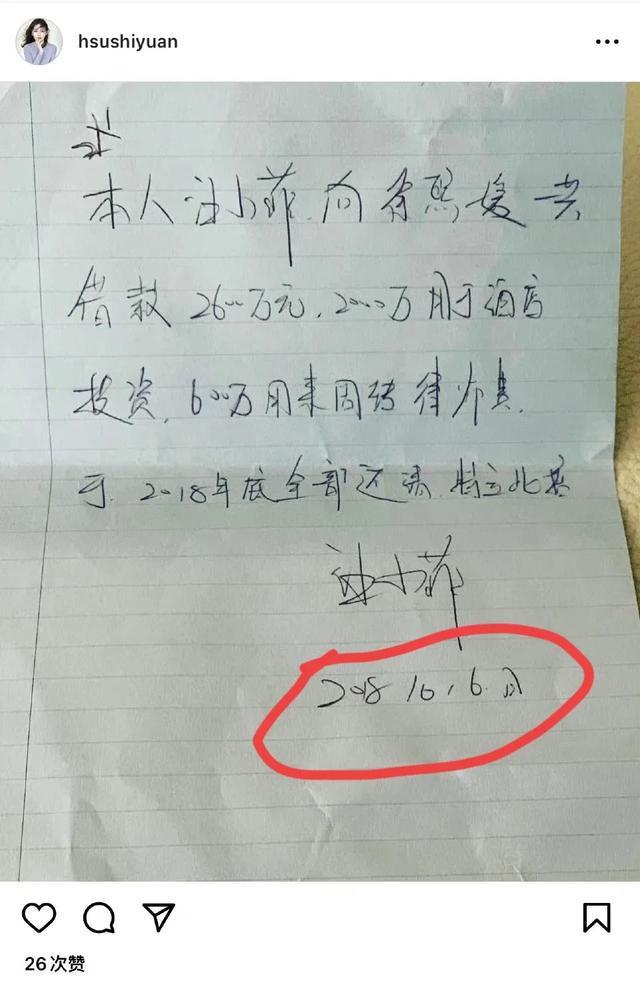 hsushiyuan
本人汪小菲向徐熙媛共
借款2600万元,2000万用于酒店
投资,600万用来周转律师费,
于2018年底全部还清,特立此据
汪小菲
26次赞